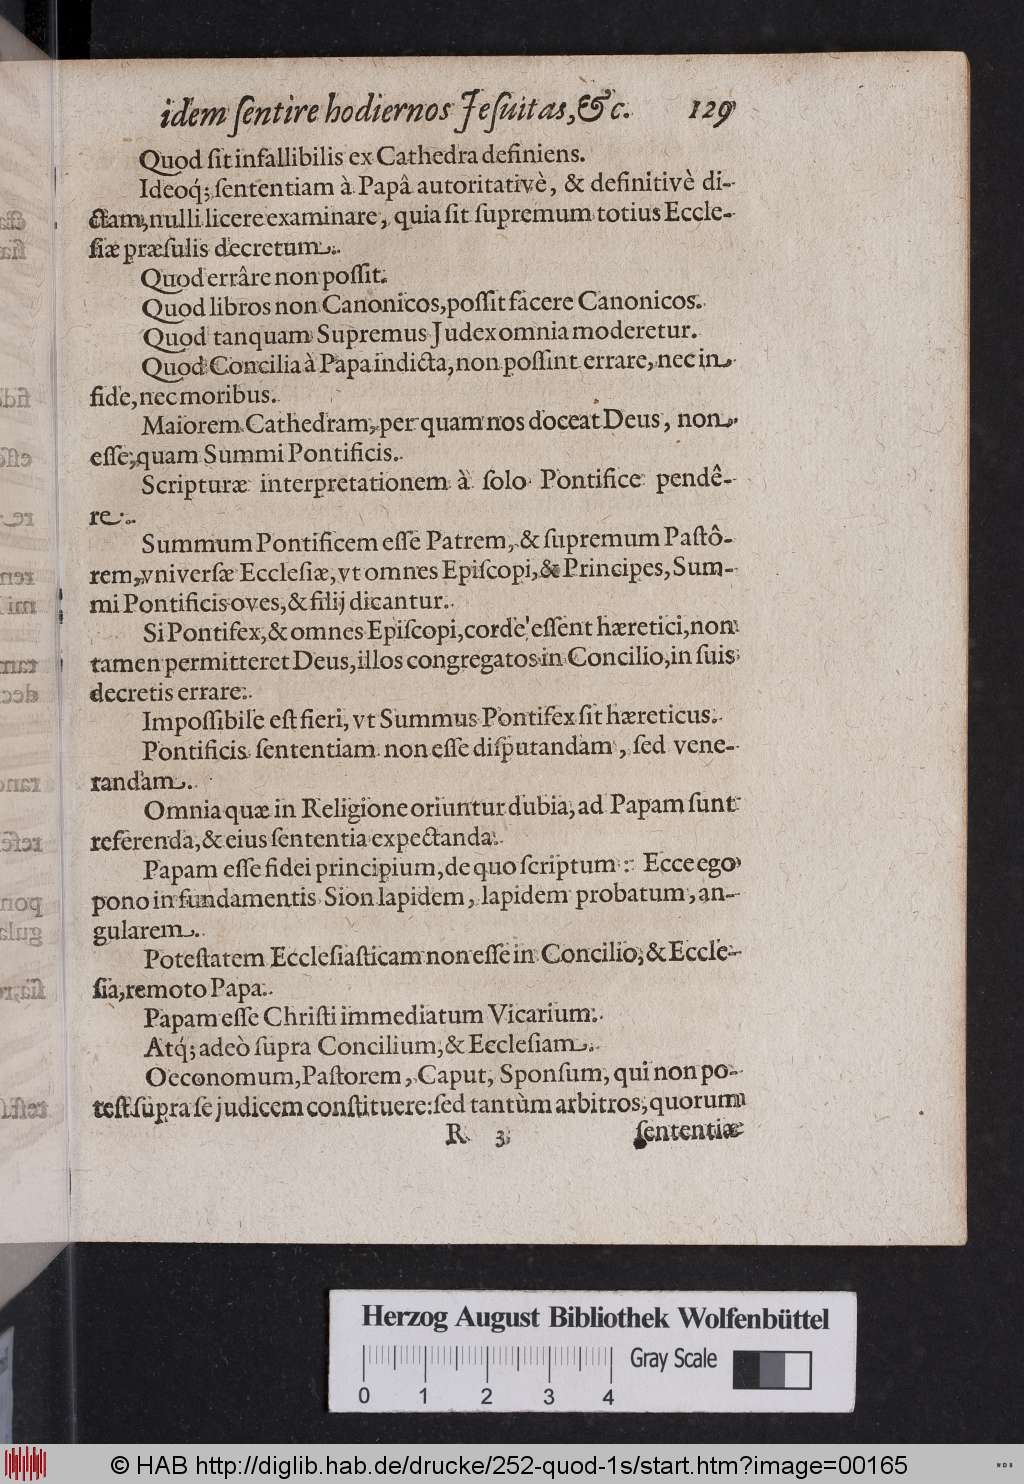 idem ſentire hodiernos Jeſuitas, &c. 129
Quod ſit infallibilis ex Cathedra definiens.
Ideoq́; ſententiam à Papâ autoritativè, & definitivè di-
ctam, nulli licere examinare, quia ſit ſupremum totius Eccle-
ſiæ præſulis decretum.
Quod errâre non poſſit.
Quod libros non Canonicos, poſſit facere Canonicos.
Quod tanquam Supremus Judex omnia moderetur.
Quod Concilia à Papa indicta, non poſſint errare, nec in
fide, nec moribus.
Maiorem Cathedram, per quam nos doceat Deus, non
eſſe, quam Summi Pontificis.
Scripturæ interpretationem à ſolo Pontifice pendê-
re.
Summum Pontificem eſſe Patrem, & ſupremum Paſtô-
rem, vniverſæ Eccleſiæ, vt omnes Epiſcopi, & Principes, Sum-
mi Pontificis oves, & filij dicantur.
Si Pontifex, & omnes Epiſcopi, corde eſſent hæretici, non
tamen permitteret Deus, illos congregatos in Concilio, in ſuis
decretis errare.
Impoſſibile eſt fieri, vt Summus Pontifex ſit hæreticus.
Pontificis ſententiam non eſſe diſputandam, ſed vene-
randam.
Omnia quæ in Religione oriuntur dubia, ad Papam ſunt
referenda, & eius ſententia expectanda.
Papam eſſe fidei principium, de quo ſcriptum: Ecce ego
pono in fundamentis Sion lapidem, lapidem probatum, an-
gularem.
Poteſtatem Eccleſiaſticam non eſſe in Concilio, & Eccle-
ſia, remoto Papa.
Papam eſſe Chriſti immediatum Vicarium.
Atq́; adeò ſupra Concilium, & Eccleſiam.
Oeconomum, Paſtorem, Caput, Sponſum, qui non po-
teſt ſupra ſe judicem conſtituere: ſed tantùm arbitros, quorum
R 3 ſententiæ
Herzog August Bibliothek Wolfenbüttel
Gray Scale
0 1 2 3 4
© HAB http://diglib.hab.de/drucke/252-quod-1s/start.htm?image=00165